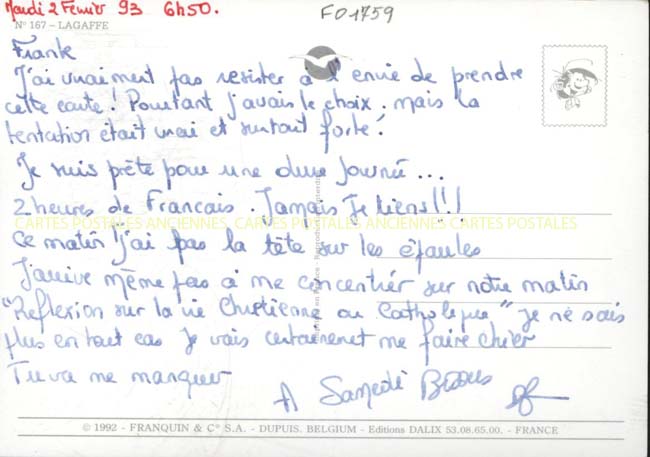 Mardi 2 Février 93 6h50.
F01759
N° 167 – LAGAFFE
Frank
J'ai vraiment pas resister à l'envie de prendre
cette carte! Pourtant j'avais le choix. mais la
tentation était vrai et surtout forte!
Je suis prète pour une dure Journée...
2 heures de Francais. Jamais Je tiens!!!
CARTES POSTALES ANCIENNES CARTES POSTALES ANCIENNES CARTES POSTALES
Ce matin j'ai pas la tête sur les épaules
J'arrive même pas à me concentrér sur notre matin
"Reflexion sur la vie Chrétienne ou Catholique" je ne sais
plus en tout cas je vais certainement me faire chier
Tu va me manquer
A Samedi Bisous
© 1992 - FRANQUIN & C° S.A. - DUPUIS. BELGIUM - Editions DALIX 53.08.65.00. - FRANCE